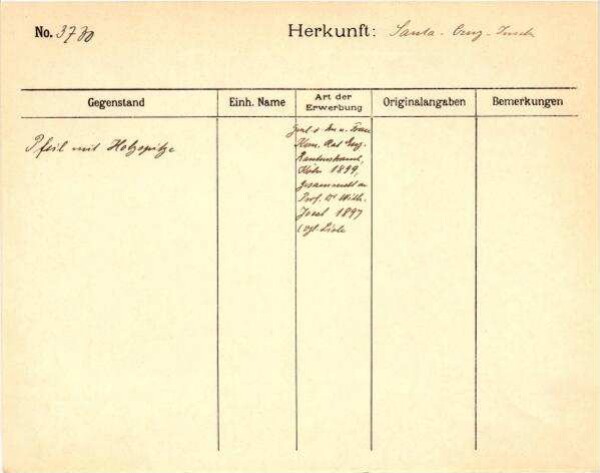 No. 3730
Herkunft: Santa-Cruz-Inseln
Gegenstand
Einh. Name
Art der Erwerbung
Originalangaben
Bemerkungen
Pfeil mit Holzspitze
Kom. Rat Eug.
Rautenstrauch,
Köln 1899,
gesammelt v.
Prof. Dr Wilh.
Joest 1897